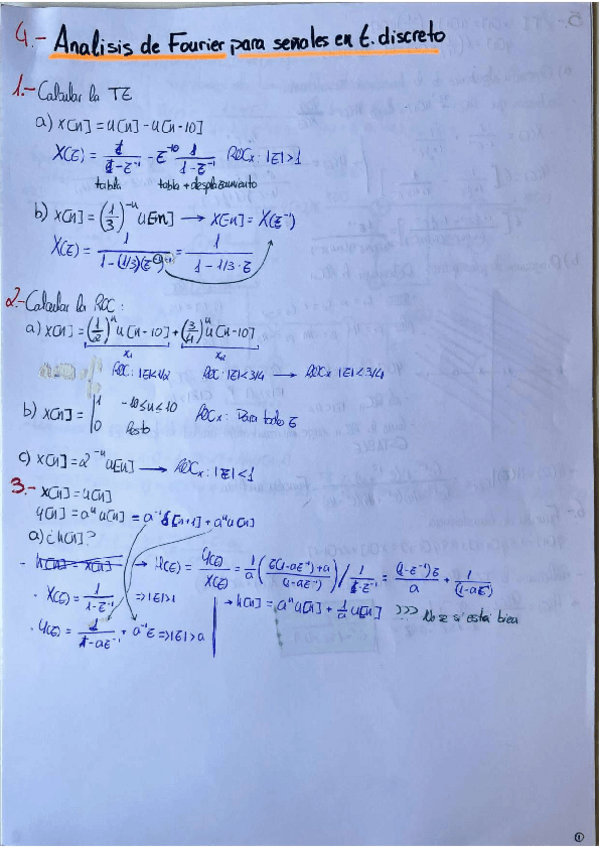 4.- Analisis de Fourier para señales en t. discreto
1.- Calcular la TZ
a) x[n] = u[n] - u[n-10]
X(z) = 1/(1-z⁻¹) - z⁻¹⁰ 1/(1-z⁻¹) ROCx: |z|>1
tabla tabla + desplazamiento
b) x[n] = (1/3)⁻ⁿ u[n] → x[n] = X(z⁻¹)
X(z) = 1/(1-(1/3)(z⁻¹)) = 1/(1-1/3·z)
2.- Calcular la ROC:
a) x[n] = (1/2)ⁿ u[n-10] + (3/4)ⁿ u[n-10]
x₁ x₂
ROC: |z|<1/2 ROC: |z|<3/4 → ROCx |z|<3/4
b) x[n] = 1 -10≤n≤10 ROCx: Para todo z
0 Resto
c) x[n] = 2⁻ⁿ u[n] → ROCx: |z|<1
3.- x[n] = u[n]
y[n] = aⁿ u[n] = a⁻¹ δ[n+1] + aⁿ u[n]
a) ¿h[n]?
→ H(z) = Y(z)/X(z) = 1/a (z(1-az⁻¹)+a)/(1-az⁻¹) / 1/(1-z⁻¹) = (1-z⁻¹)z/a + 1/(1-az⁻¹)
· X(z) = 1/(1-z⁻¹) => |z|>1
→ h[n] = aⁿ u[n] + 1/a u[n] ??? No se si está bien
· Y(z) = 1/(1-az⁻¹) + a⁻¹z => |z|>a
1